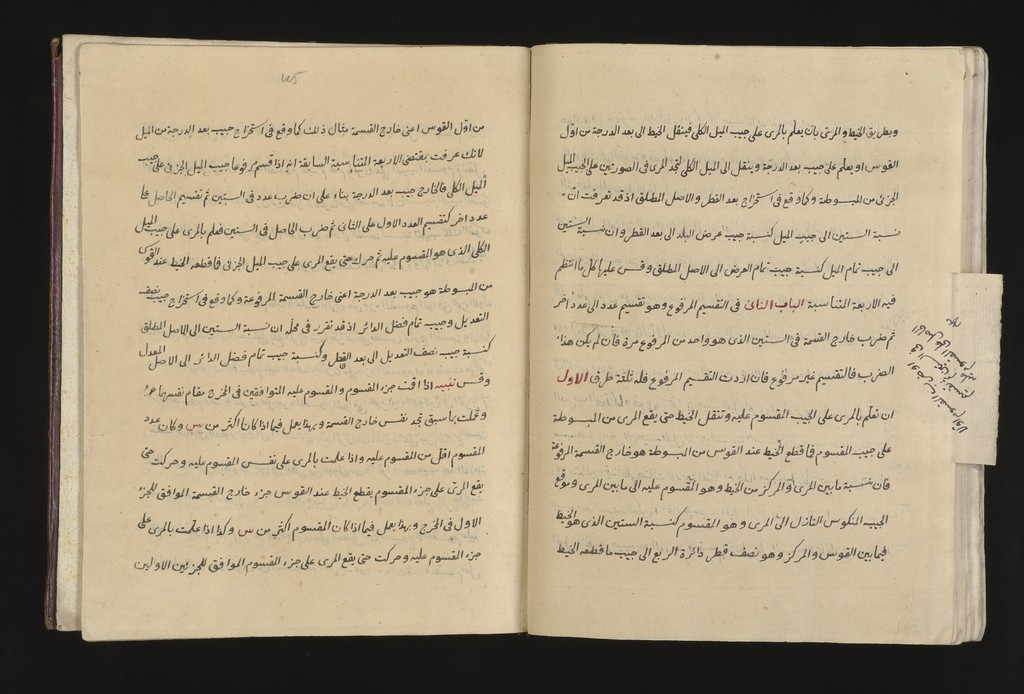 وبطريق الخيط والمرى بان يعلم بالمرى على جيب الميل الكلى فينقل الخيط الى بعد الدرجة من اول
القوس او يعلم على جيب بعد الدرجة وينقل الى الميل الكلى تجد المرى فى الصورتين على جيب الميل
الجزئى من المبسوطة وكما وقع فى استخراج بعد القطر والاصل المطلق اذ قد تعرفت ان
نسبة الستين الى جيب الميل كنسبة جيب عرض البلد الى بعد القطر وان نسبة الستين
الى جيب تمام الميل كنسبة جيب تمام العرض الى الاصل المطلق وقس عليها كل ما انتظم
فيه الاربعة المتناسبة الباب الثانى فى التقسيم المرفوع وهو تقسيم عدد الى عدد اخر
ثم ضرب خارج القسمة فى الستين الذى هو واحد من المرفوع مرة فان لم يكن هذا
الضرب فالتقسيم غير مرفوع فان اردت التقسيم المرفوع فله ثلثة طرق الاول
ان تعلم بالمرى على الجيب المقسوم عليه وتنقل الخيط حتى يقع المرى من المبسوطة
على جيب المقسوم فما قطع الخيط عند القوس من المبسوطة هو خارج القسمة المرفوعة
فان نسبة ما بين المرى والمركز من الخيط وهو المقسوم عليه الى ما بين المرى وموقع
الجيب المنكوس النازل الى المرى وهو المقسوم كنسبة الستين الذى هو الخيط
فيما بين القوس والمركز وهو نصف قطر دائرة الربع الى جيب ما قطعه الخيط
من اول القوس اعنى خارج القسمة مثال ذلك كما وقع فى استخراج جيب بعد الدرجة من الميل
لانك عرفت بمقتضى الاربعة المتناسبة السابقة انه اذا قسم مرفوعا جيب الميل الجزئى على جيب
الميل الكلى فالخارج جيب بعد الدرجة بناء على ان ضرب عدد فى الستين ثم تقسيم الحاصل على
عدد اخر كتقسيم العدد الاول على الثانى ثم ضرب الحاصل فى الستين فعلم بالمرى على جيب الميل
الكلى الذى هو المقسوم عليه ثم حرك حتى يقع المرى على جيب الميل الجزئى فما قطعه الخيط عند القوس
من المبسوطة هو جيب بعد الدرجة اعنى خارج القسمة المرفوعة وكما وقع فى استخراج جيب نصف
التعديل وجيب تمام فضل الدائر اذ قد تقرر فى محله ان نسبة الستين الى الاصل المطلق
كنسبة جيب نصف التعديل الى بعد القطر وكنسبة جيب تمام فضل الدائر الى الاصل المعدل
وقس تنبيه اذا اقمت جزء المقسوم والمقسوم عليه المتوافقين فى المخرج مقام نفسهما
وعملت بما سبق تجد نفس خارج القسمة وبهذا يعمل فيما اذا كانا اكثر من س وكان عدد
المقسوم اقل من المقسوم عليه واذا علمت بالمرى على نفس المقسوم عليه وحركت حتى
يقع المرى على جزء المقسوم يقطع الخيط عند القوس جزء خارج القسمة الموافق للجزء
الاول فى المخرج وبهذا يعمل فيما اذا كان المقسوم اكثر من س وكذا اذا علمت بالمرى على
جزء المقسوم عليه وحركت حتى يقع المرى على جزء المقسوم الموافق للجزئين الاولين